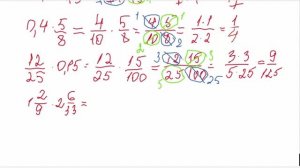 0,4 · 5/8 = 4/10 · 5/8 = 4 5/10 8 = 1·1/2·2 = 1/4
12/25 · 0,15 = 12/25 · 15/100 = 12 15/25 100 = 3·3/5·25 = 9/125
1 2/9 · 2 6/33 =